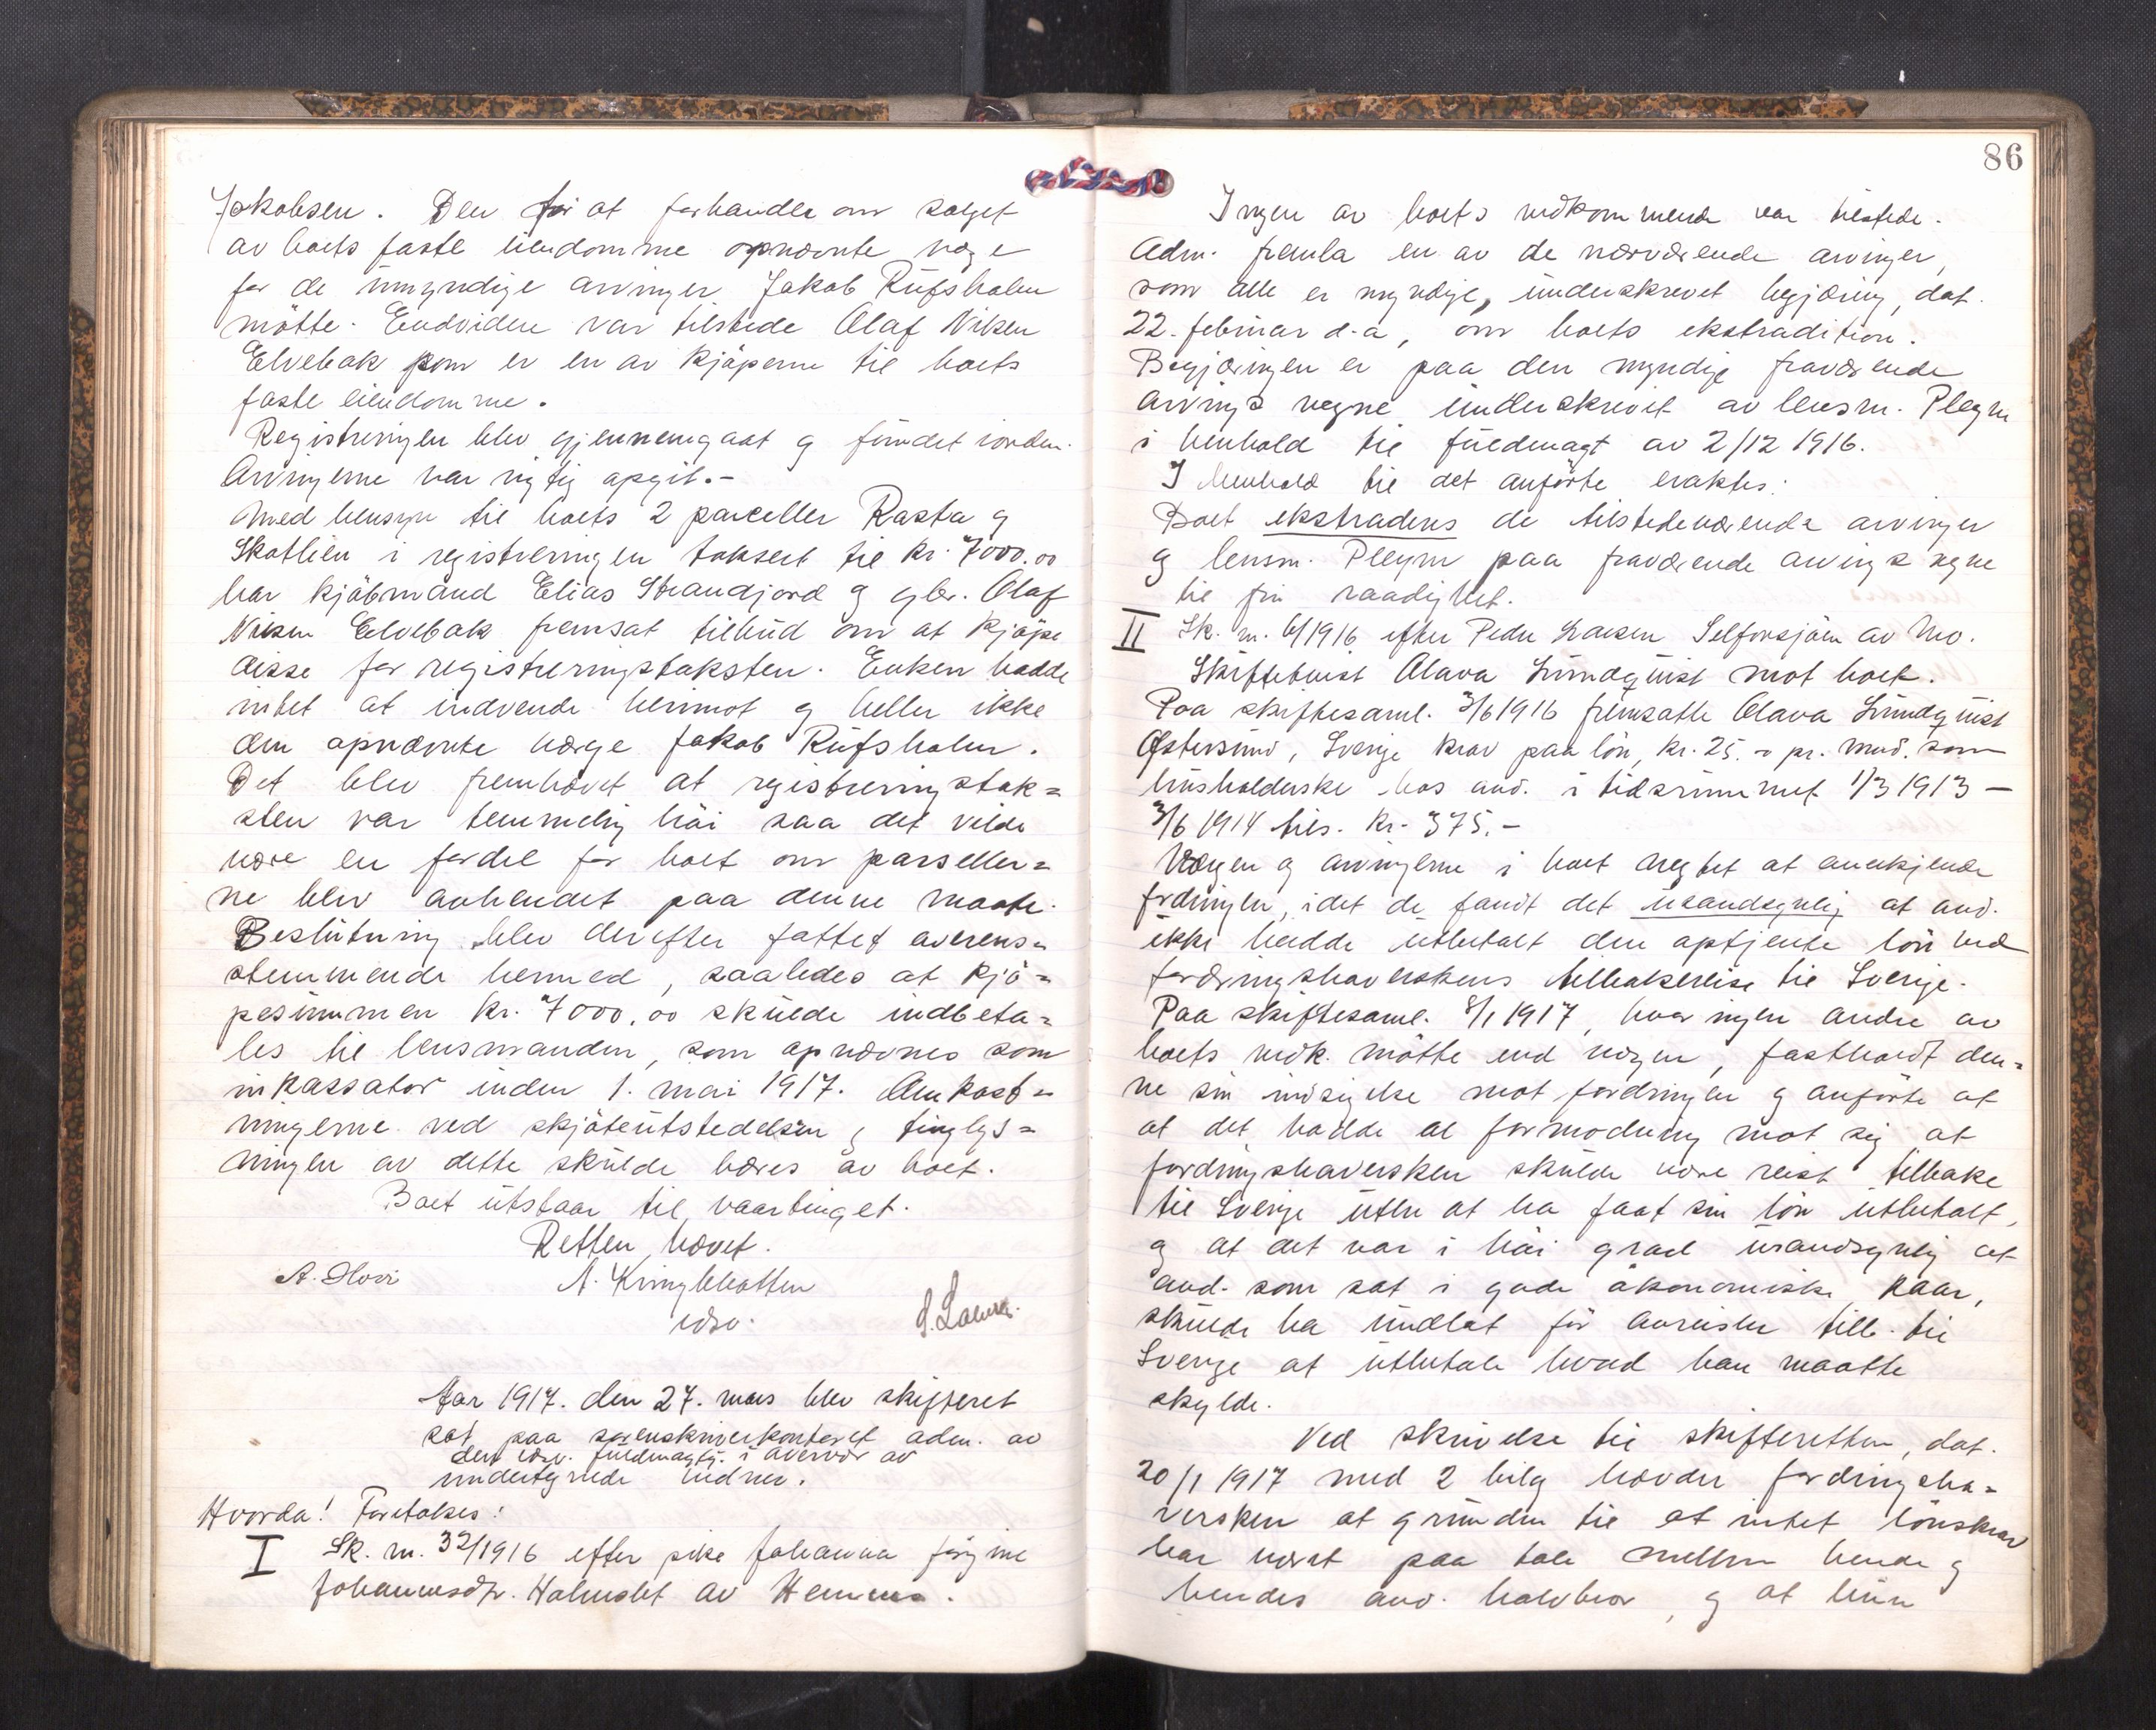 Jakobsen. Den for at forhandle om salget
av boets faste eiendomme opnævnte verge
for de umyndige arvinger Jakob Rufsholm
mötte. Endvidere var tilstede Olaf Nilsen
Elvebak som er en av kjöperne til boets
faste eiendomme.
Registreringen blev gjennemgaat og fundet iorden.
Arvingerne var rigtig opgit.-
Med hensyn til boets 2 parceller Rasta og
Skotlien i registreringen taksert til kr. 7000.00
har kjöbmand Elias Strandjord og gbr. Olaf
Nilsen Elvebak fremsat tilbud om at kjöpe
disse for registreringstaksten. Enken hadde
intet at indvende herimot og heller ikke
den opnævnte verge Jakob Rufsholm.
Det blev fremhævet at registreringstak=
sten var temmelig höi saa det vilde
være en fordel for boet om parseller=
ne blev avhendet paa denne maate.
Beslutning blev derefter fattet overens=
stemmende hermed, saaledes at kjö=
pesummen kr. 7000,00 skulde indbeta=
les til lensmanden, som opnævnes som
inkassator inden 1. mai 1917. Omkost=
ningerne ved skjöteutstedelsen og tinglys=
ningen av dette skulde bæres av boet.
Boet utstaar til vaartinget.
Retten hævet.
A. Hovi
A. Kringlebotten
edsv.
Aar 1917. den 27. mars blev skifteret
sat paa sorenskriverkontoret adm. av
den edsv. fuldmægtig i overvær av
undertegnede vidner.
Hvorda! Foretokes:
I Sk. nr. 32/1916 efter pike Johanna Jörgine
Johannesdtr. Holmslet av Hemnes.
86
Ingen av boets vedkommende var tilstede.
Adm. fremla en av de nærværende arvinger,
som alle er myndige, underskrevet begjæring, dat.
22. februar d.a, om boets ekstradition.
Begjæringen er paa den myndige fraværende
arvings vegne underskrevet av lensm. Pleym
i henhold til fuldmagt av 2/12 1916.
I henhold til det anförte eraktes:
Boet ekstraderes de tilstedeværende arvinger
og lensm. Pleym paa fraværende arvings vegne
til fri raadighet.
II Sk. nr. 6/1916 efter Peder Larsen Selforsjöen av Mo.
Skiftetvist Olava Lundquist mot boet.
Paa skiftesaml. 3/6 1916 fremsatte Olava Lundquist
Østersund, Sverige krav paa lön, kr. 25.- pr. mnd. som
husholderske hos avd. i tidsrummet 1/3 1913 –
3/6 1914 tils. kr. 375.-
Vergen og arvingerne i boet negtet at anerkjende
fordringen, idet de fandt det usandsynlig at avd.
ikke hadde utbetalt den optjente lön ved
fordringshaverskens tilbakereise til Sverige.
Paa skiftesaml. 8/1 1917, hvor ingen andre av
boets vedk. mötte end vergen, fastholdt den=
ne sin indsigelse mot fordringen og anförte at
at det hadde al formodning mot sig at
fordringshaversken skulde være reist tilbake
til Sverige uten at ha faat sin lön utbetalt,
og at det var i höi grad usandsynlig at
avd. som sat i gode ökonomiske kaar,
skulde ha undlat för avreisen tilb. til
Sverige at utbetale hvad han maatte
skylde.
Ved skrivelse til skifteretten, dat.
20/1 1917 med 2 bilag hævder fordringsha=
versken at grunden til at intet lönskrav
har været paa tale mellem hende og
hendes avd. halvbror, og at hun